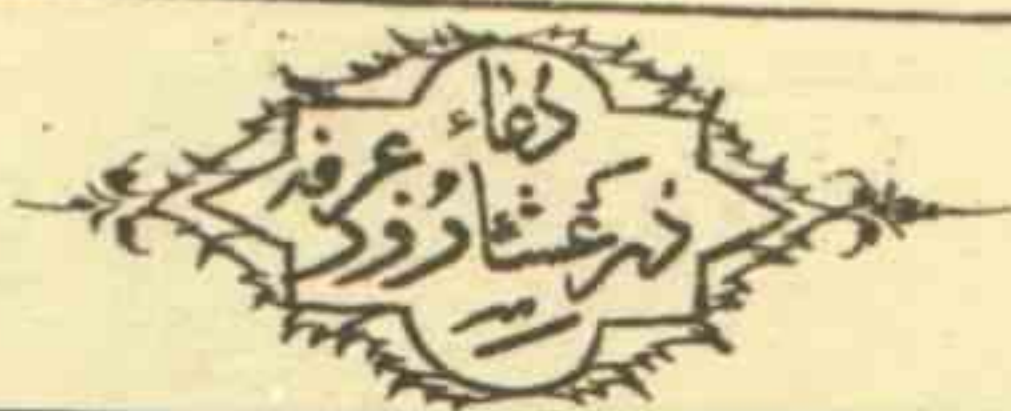 دُعٰاء
ذکر عشٰا رُوز عرفه